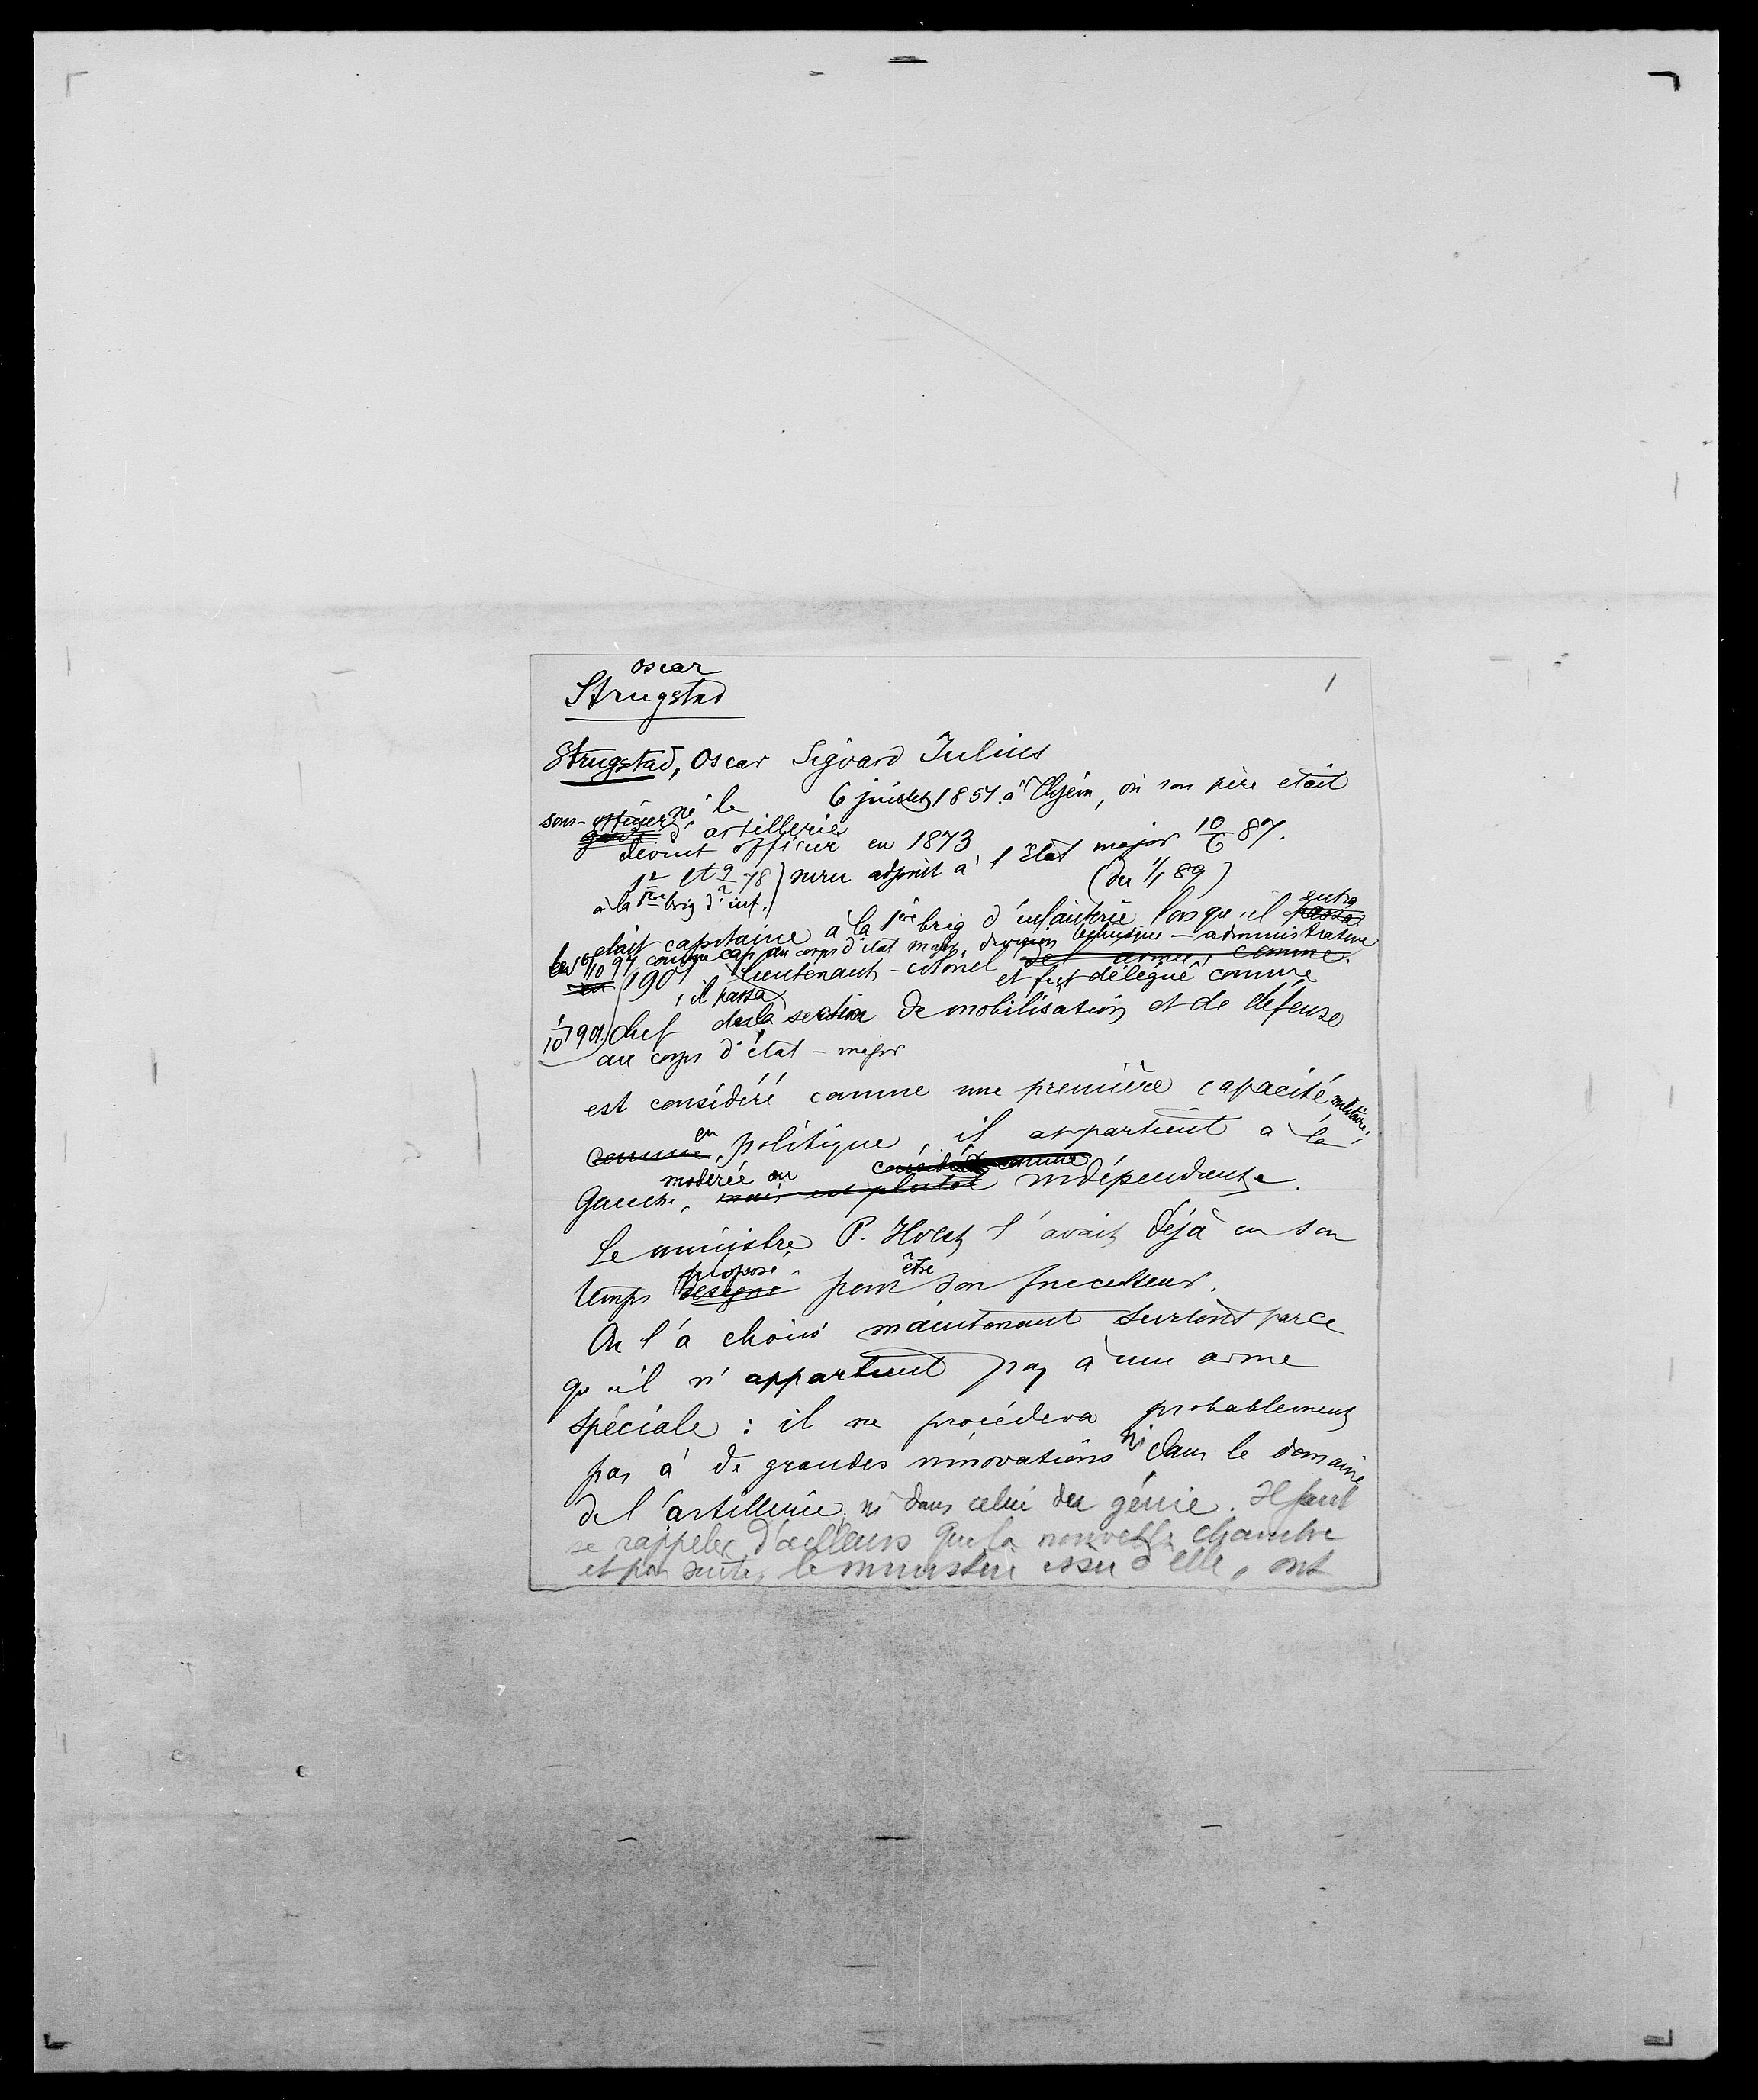 Oscar
Strugstad
1
Strugstad, Oscar Sigvard Julius
né le 6 juillet 1851 à Thjem, où son père etait
sous-officier d'artillerie
devint officier en 1873
1r lt 9/2 78) meru adjoint à l'Etat major 10/6 87.
à la 1ère brig d'inf.) (du 1/1 89)
etait capitaine à la 1ère brig d'infanterie lorsqu'il passa entra
le 1er/10 97 comme cap au corps d'état major, division technique - administrative
en 1901 lieutenant-colonel des armes, comme
, il passa et fut délégué comme
1/10 1901) chef de la section de mobilisation et de défense
au corps d'état-major
est considéré comme une première capacité militaire;
comme en politique, il appartient à la
modérée ou considéré comme
Gauche, mais est plutôt indépendante.
Le ministre P. Holst l'avait déjà en son
temps désigné proposé pour être son successeur.
On l'a choisi maintenant surtout parce
qu'il n'appartient pas à une arme
spéciale : il ne procédera probablement
pas à de grandes innovations ni dans le domaine
de l'artillerie, ni dans celui du génie. Il faut
se rappeler d'ailleurs que la nouvelle chambre
et par suite, le ministère issu d'elle, ont